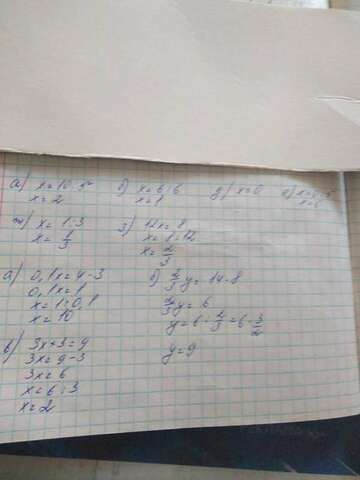 а) x = 10 : 5 б) x = 6 : 6 д) x = 0
x = 2 x = 1
ж) x = 1 : 3 з) 12x = 8
x = 1/3 x = 8 : 12
x = 2/3
а) 0,1x = 4 - 3 б) 2/3 y = 14 - 8
0,1x = 1 2/3 y = 6
x = 1 : 0,1 y = 6 : 2/3 = 6 · 3/2
x = 10 y = 9
в) 3x + 3 = 9
3x = 9 - 3
3x = 6
x = 6 : 3
x = 2